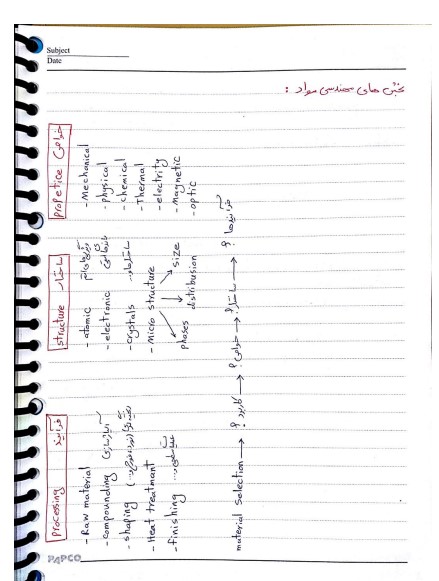 Subject
Date
بخش های مهندسی مواد :
processing فرآیند
- Raw material
- compounding آلیاژسازی
- shaping
- Heat treatmant
- finishing
structure ساختار
- atomic
- electronic
- crystals
- micro structure
phases distribusion size
propetice خواص
- Mechanical
- physical
- chemical
- Thermal
- electrity
- Magnetic
- optic
material selection → کاربرد ؟ → خواص ؟ → ساختار ؟ → فرآیندها ؟
PAPCO